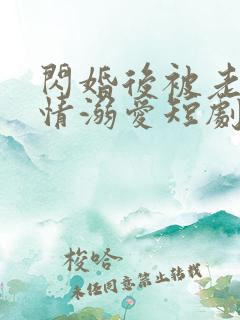 閃婚後被老
情溺愛短劇
梭哈
未任同意禁止转载